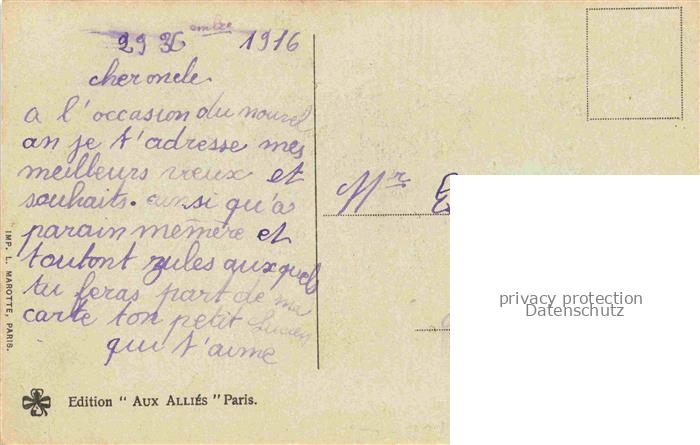 29 Xembre 1916
cher oncle
a l'occasion du nouvel
an je t'adresse mes
meilleurs vœux et
souhaits. ainsi qu'à
parain mémère et
toutont jules auxquels
tu feras part de ma
carte ton petit Lucien
qui t'aime
IMP. L. MAROTTE, PARIS.
Edition " AUX ALLIÉS " Paris.
Mr
privacy protection
Datenschutz